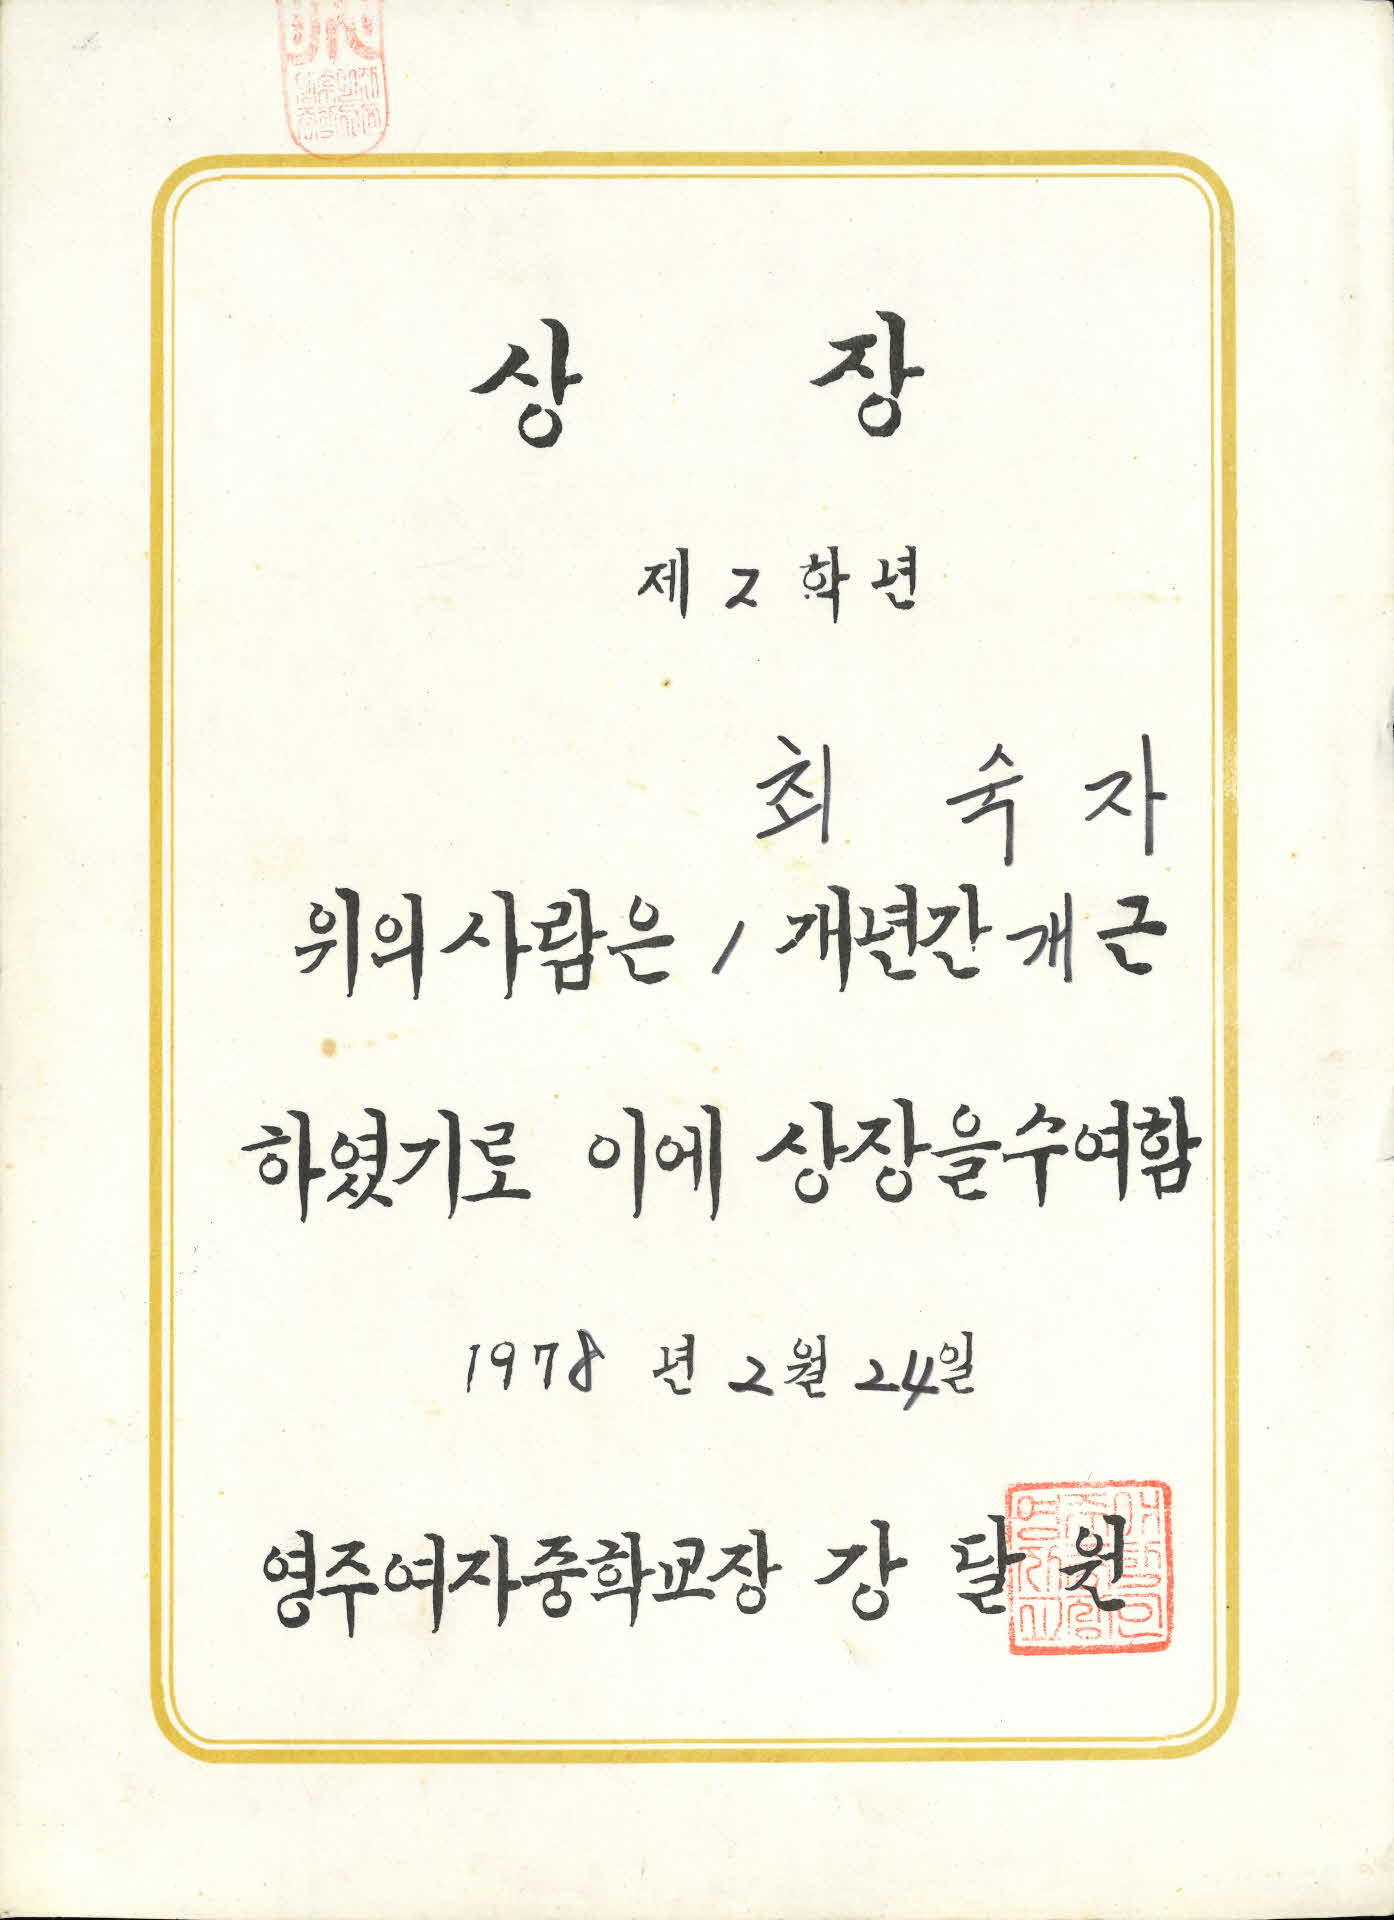 상 장
제 2 학년
최 숙 자
위의 사람은 1 개년간 개근
하였기로 이에 상장을 수여함
1978 년 2월 24일
영주여자중학교장 강 달 원